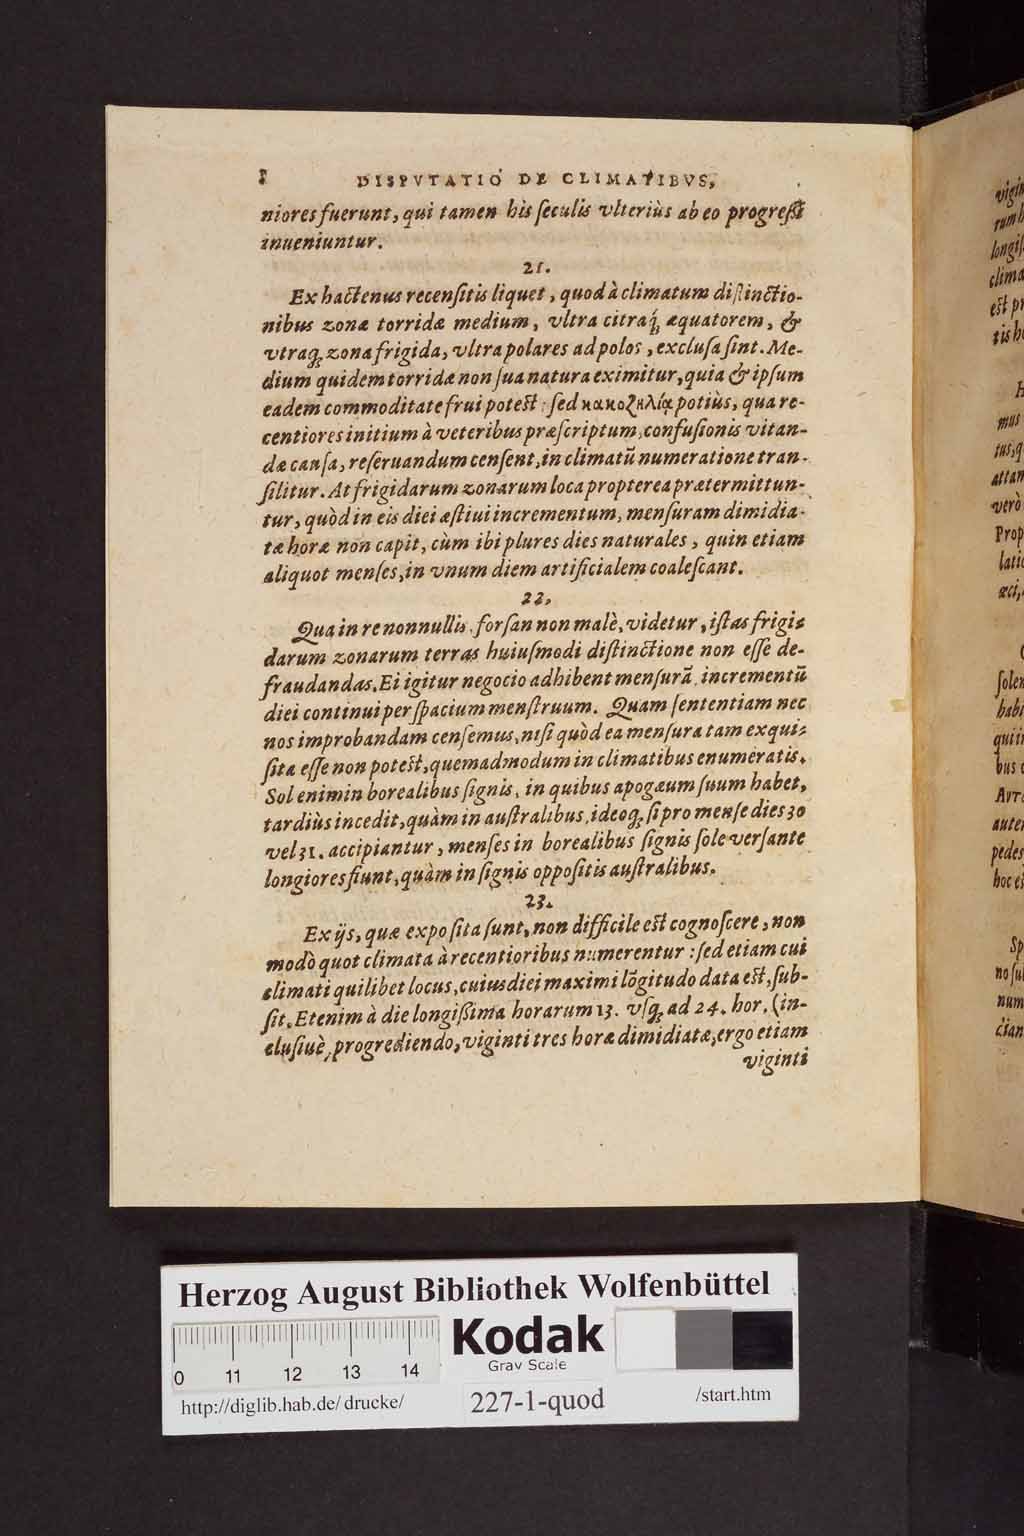 8 DISPVTATIO DE CLIMATIBVS,
niores fuerunt, qui tamen his ſeculis vlteriùs ab eo progreßi
inueniuntur.
21.
Ex hactenus recenſitis liquet, quod à climatum diſtinctio-
nibus zonæ torridæ medium, vltra citraq́; æquatorem, &
vtraq; zona frigida, vltra polares ad polos, excluſa ſint. Me-
dium quidem torridæ non ſua natura eximitur, quia & ipſum
eadem commoditate frui potest: ſed κακοζηλίᾳ potiùs, qua re-
centiores initium à veteribus præſcriptum, confuſionis vitan-
dæ cauſa, reſeruandum cenſent, in climatū numeratione tran-
ſilitur. At frigidarum zonarum loca propterea prætermittun-
tur, quòd in eis diei æſtiui incrementum, menſuram dimidia-
tæ horæ non capit, cùm ibi plures dies naturales, quin etiam
aliquot menſes, in vnum diem artificialem coaleſcant.
22.
Qua in re nonnullis, forſan non malè, videtur, iſtas frigi-
darum zonarum terras huiuſmodi diſtinctione non eſſe de-
fraudandas. Ei igitur negocio adhibent menſurā, incrementū
diei continui per ſpacium menſtruum. Quam ſententiam nec
nos improbandam cenſemus, niſi quòd ea menſura tam exqui-
ſita eſſe non potest, quemadmodum in climatibus enumeratis.
Sol enim in borealibus ſignis, in quibus apogæum ſuum habet,
tardiùs incedit, quàm in auſtralibus, ideoq; ſi pro menſe dies 30
vel 31. accipiantur, menſes in borealibus ſignis ſole verſante
longiores fiunt, quàm in ſignis oppoſitis auſtralibus.
23.
Ex ijs, quæ expoſita ſunt, non difficile est cognoſcere, non
modò quot climata à recentioribus numerentur: ſed etiam cui
climati quilibet locus, cuius diei maximi lōgitudo data est, ſub-
ſit. Etenim à die longißima horarum 13. vſq; ad 24. hor. (in-
cluſiuè, progrediendo, viginti tres horæ dimidiatæ, ergo etiam
viginti
Herzog August Bibliothek Wolfenbüttel
Kodak
Gray Scale
0 11 12 13 14
http://diglib.hab.de/drucke/ 227-1-quod /start.htm